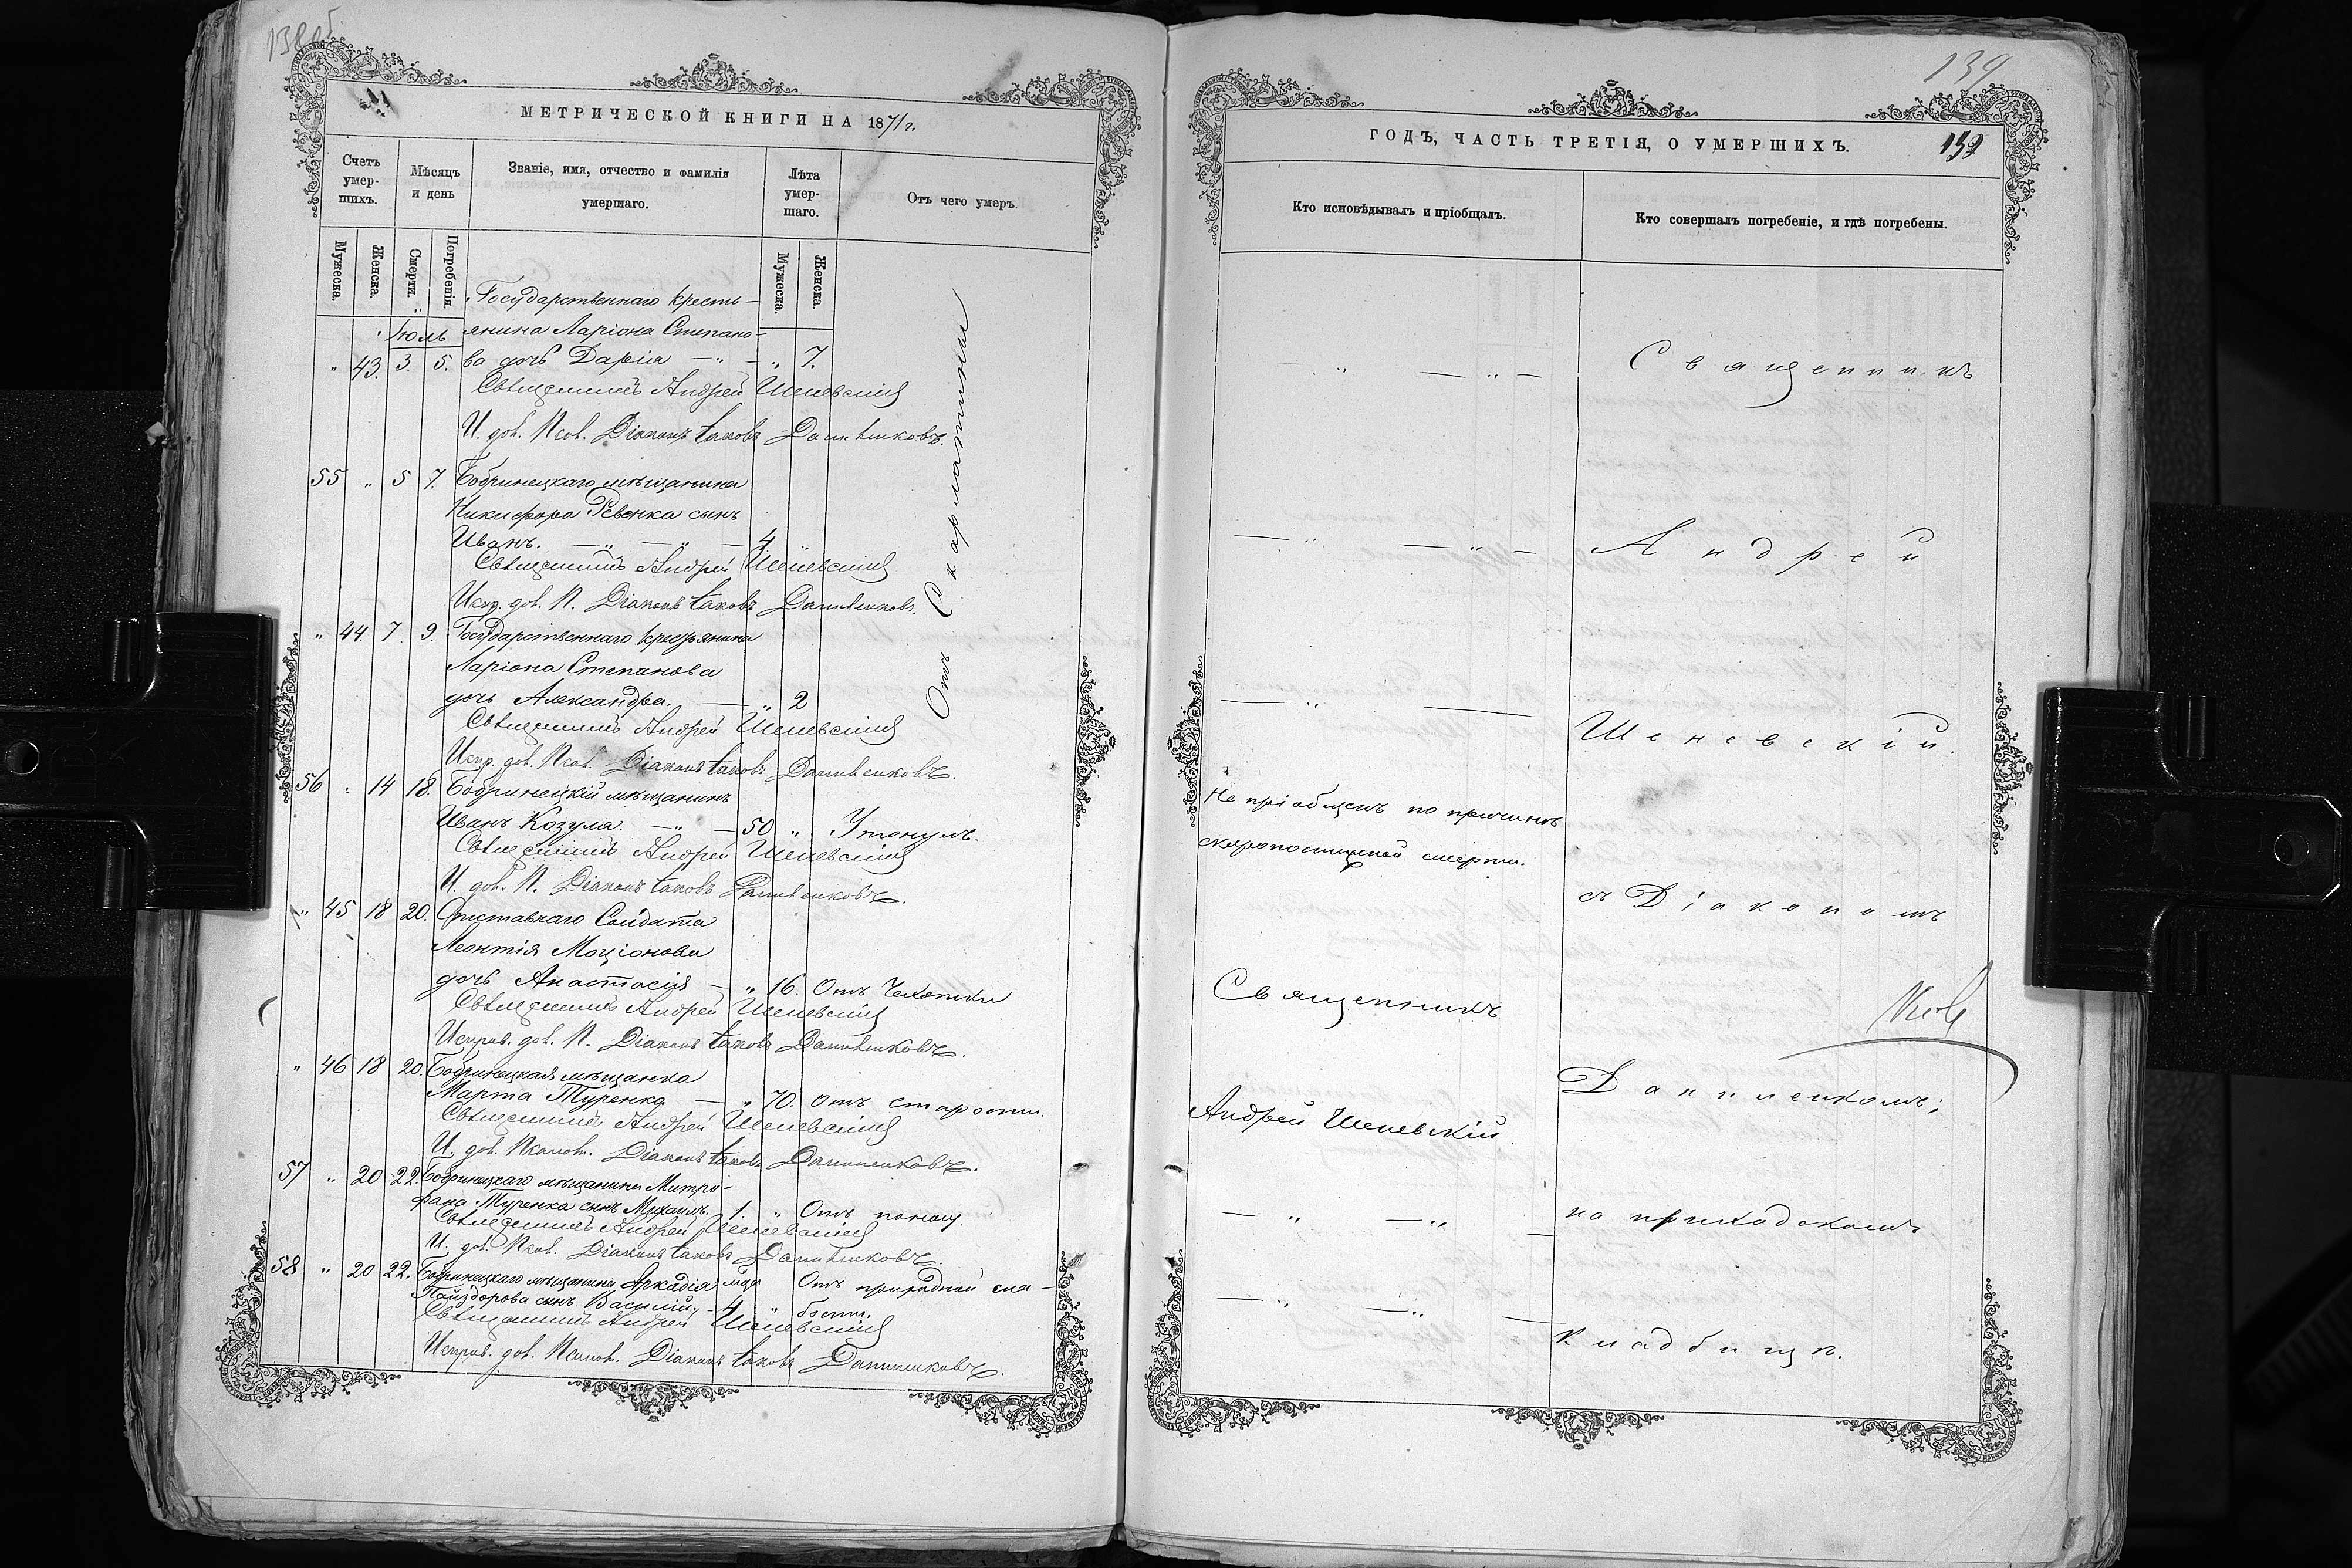 138об
МЕТРИЧЕСКОЙ КНИГИ НА 1871г.
Счетъ умер-шихъ.
Мѣсяцъ и день
Званіе, имя, отчество и фамилія умершаго.
Лѣта умер-шаго.
Отъ чего умеръ.
Мужеска.
Женска.
Смерти.
Погребенія.
Мужеска.
Женска.
Государственнаго кресть-
Іюль янина Ларіона Степано-
" 43. 3. 5. ва дочь Дарія — " — " 7.
Священникъ Андрей Шеневскій
И. дол. Псал. Діаконъ Іаковъ Даниленковъ.
55 " 5 7. Бобринецкаго мѣщанина
Никифора Ревенка сынъ
Иванъ. — " — " — 4
Священникъ Андрей Шеневскій
Испр. дол. П. Діаконъ Іаковъ Даниленковъ.
" 44 7. 9. Государственнаго крестьянина
Ларіона Степанова
дочь Александра. — " 2
Священникъ Андрей Шеневскій
Испр. дол. Псал. Діаконъ Іаковъ Даниленковъ.
Отъ Скарлатины
56 " 14 18. Бобринецкій мѣщанинъ
Иванъ Козула. — " — 50 " Утонулъ.
Священникъ Андрей Шеневскій
И. дол. П. Діаконъ Іаковъ Даниленковъ.
" 45 18 20. Отставнаго Солдата
Леонтія Моціонова
дочь Анастасія — " 16. Отъ Чахотки
Священникъ Андрей Шеневскій
Исправ. дол. П. Діаконъ Іаковъ Даниленковъ.
" 46 18 20. Бобринецкая мѣщанка
Марта Туренка — " 70. Отъ старости.
Священникъ Андрей Шеневскій
И. дол. Псалом. Діаконъ Іаковъ Даниленковъ.
57 " 20 22. Бобринецкаго мѣщанина Митро-
фана Туренка сынъ Михаилъ. 1. " Отъ поносу.
Священникъ Андрей Шеневскій
И. дол. Псал. Діаконъ Іаковъ Даниленковъ.
58 " 20 22. Бобринецкаго мѣщанина Аркадія мѣд. Отъ природной сла-
сынъ Василій. — 4 " бости.
Священникъ Андрей Шеневскій
Исправ. дол. Псалом. Діаконъ Іаковъ Даниленковъ.
139
ГОДЪ, ЧАСТЬ ТРЕТІЯ, О УМЕРШИХЪ.
139
Кто исповѣдывалъ и пріобщалъ.
Кто совершалъ погребеніе, и гдѣ погребены.
" — " — Священникъ
— " — " — Андрей
— " — Шеневскій.
Не пріобщенъ по причинѣ
скоропостижной смерти.
съ Діакономъ
Священникъ
Андрей Шеневскій.
Даниленкомъ;
— " — " — на приходскомъ
— " — " — кладбищѣ.